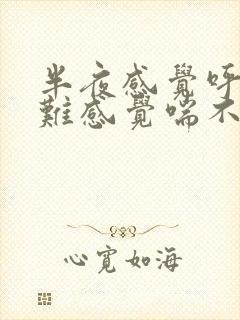 半夜感覺呼
難感覺喘不
心寬如海